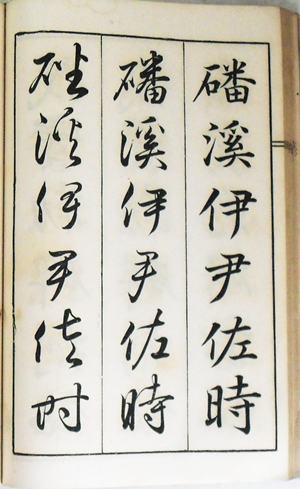 磻溪伊尹佐時
磻溪伊尹佐時
磻溪伊尹佐時